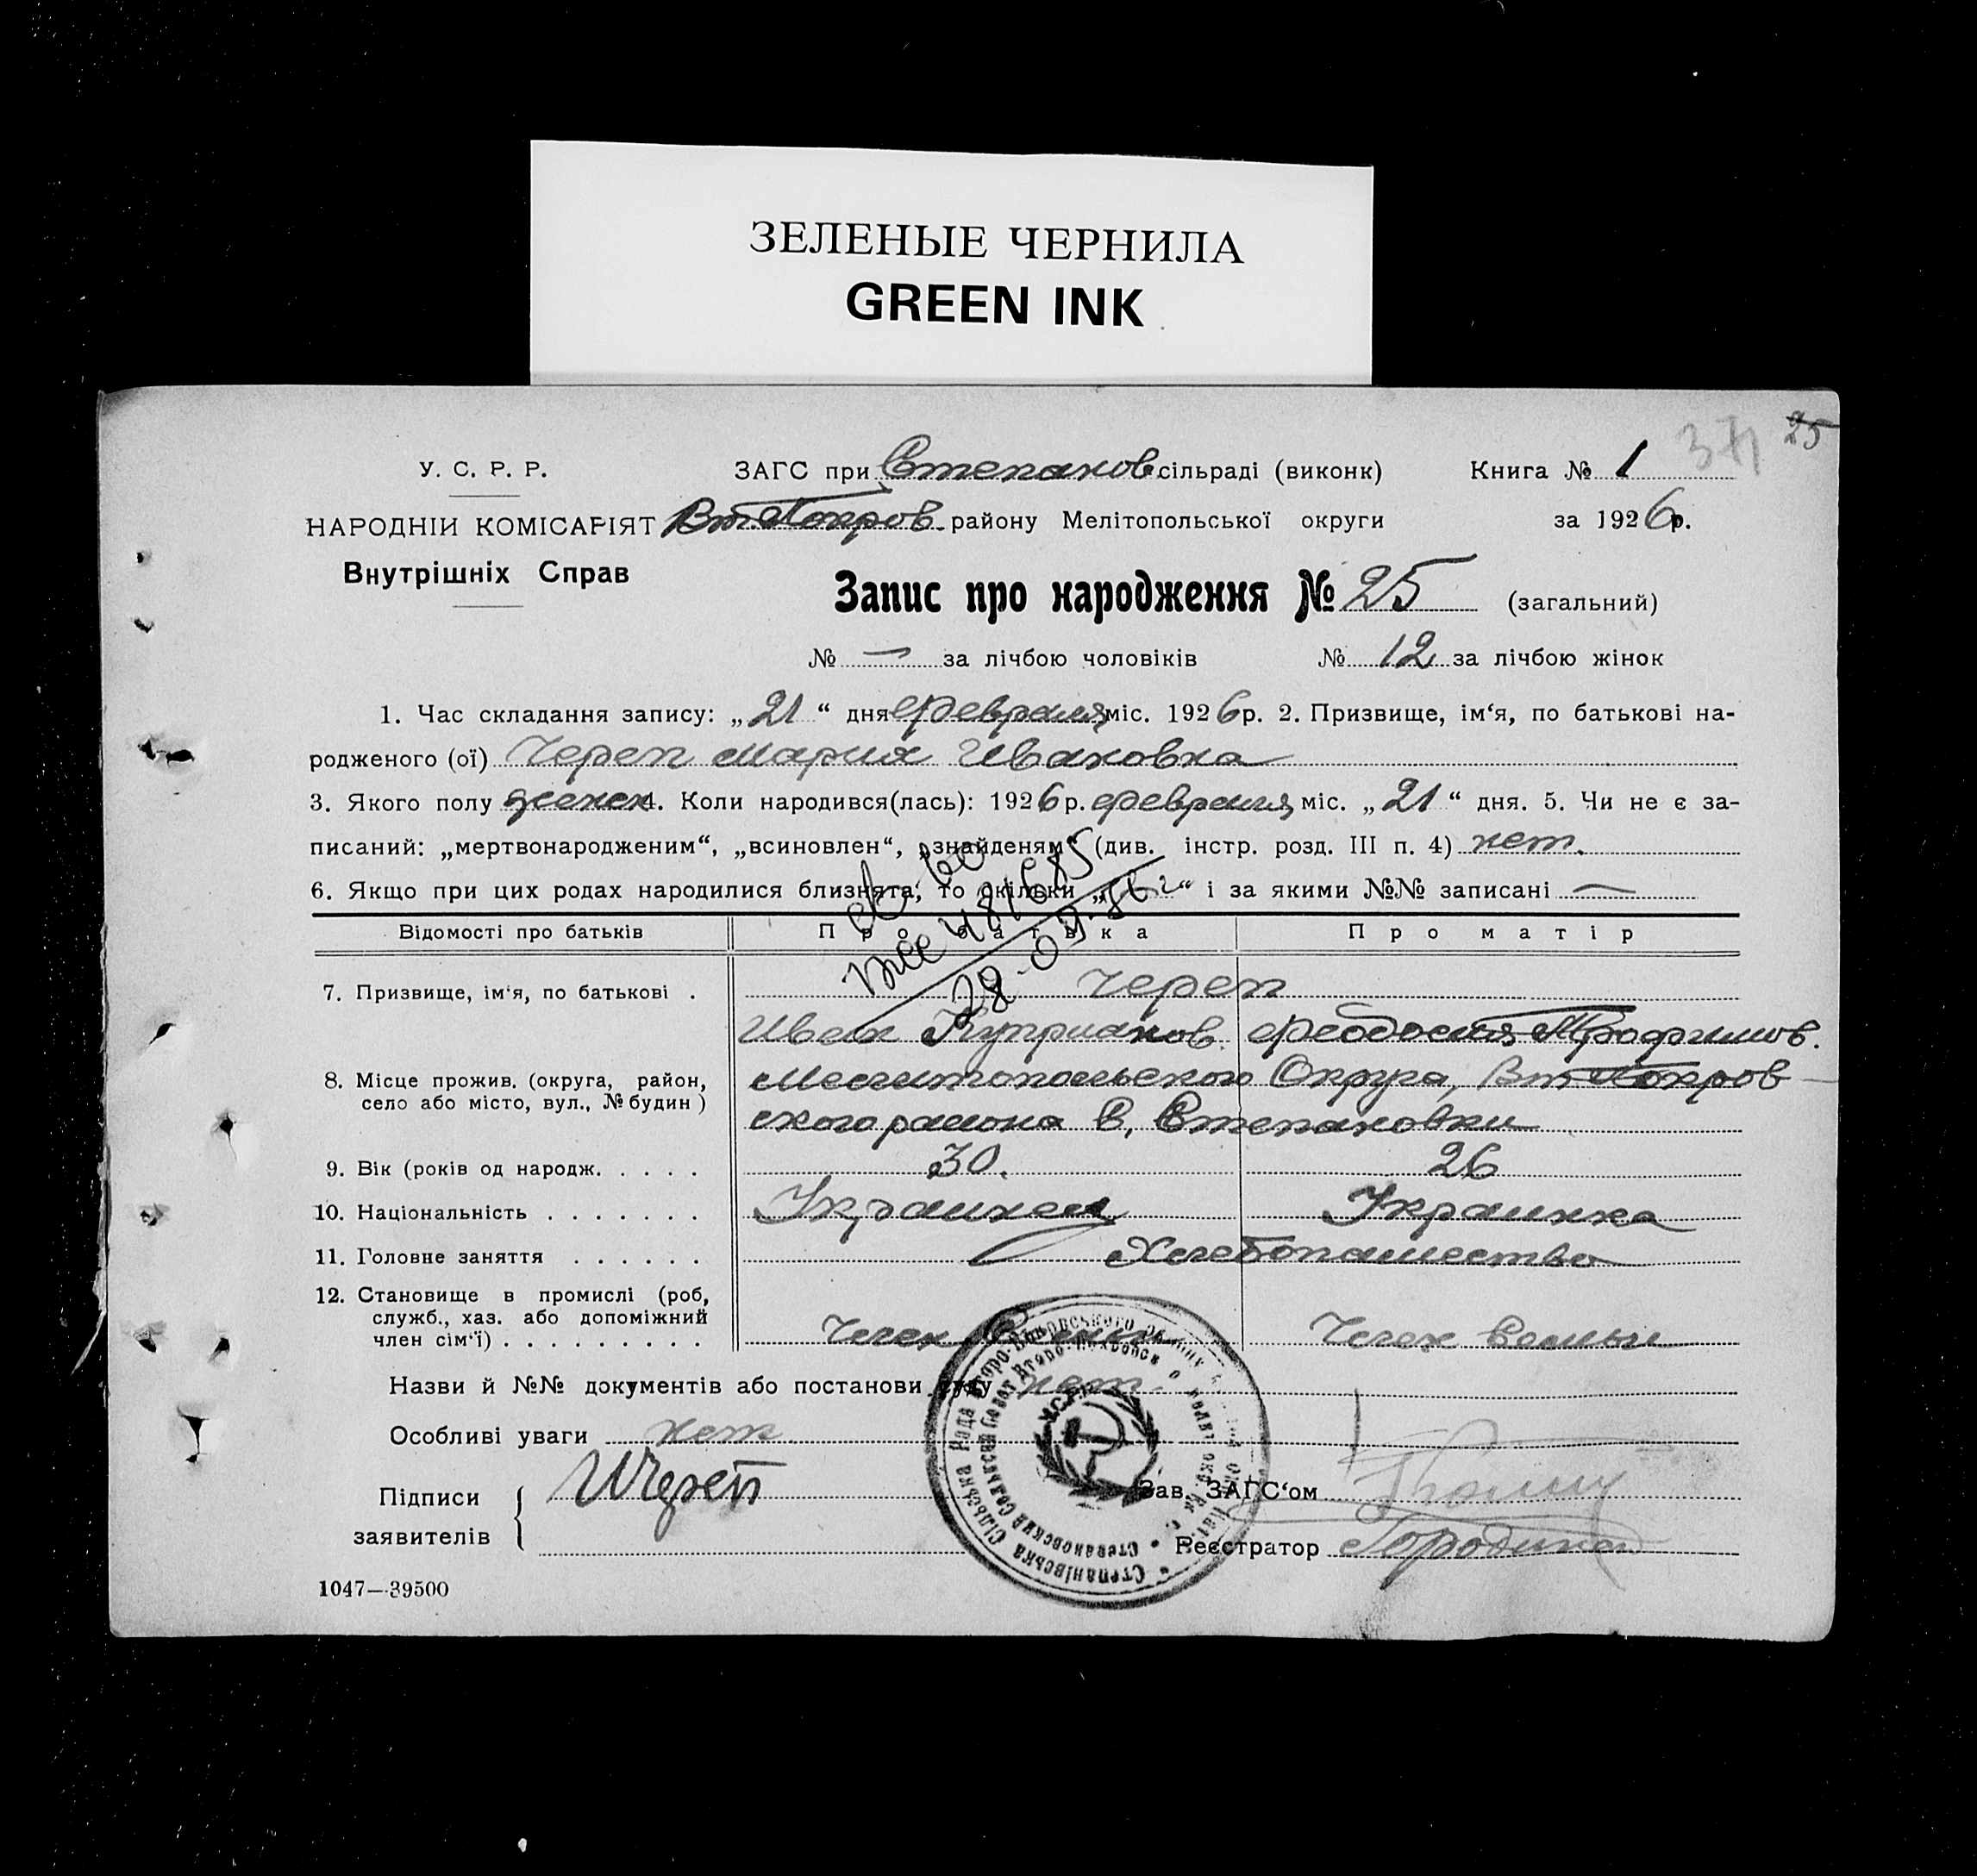 ЗЕЛЕНЫЕ ЧЕРНИЛА
GREEN INK
25
У. С. Р. Р. ЗАГС при Степанов сільраді (виконк) Книга № 1
НАРОДНІЙ КОМІСАРІЯТ Вт Покров району Мелітопольської округи за 1926 р.
Внутрішніх Справ
Запис про народження № 25 (загальний)
№ — за лічбою чоловіків № 12 за лічбою жінок
1. Час складання запису: „21“ дня февраля міс. 1926 р. 2. Призвище, ім‘я, по батькові на-
родженого (ої) Череп Мария Ивановна
3. Якого полу женск 4. Коли народився(лась): 1926 р. февраля міс. „21“ дня. 5. Чи не є за-
писаний: „мертвонародженим“, „всиновлен“, „знайденям“ (див. інстр. розд. III п. 4) нет.
6. Якщо при цих родах народилися близнята, то скільки „ “ і за якими №№ записані —
481685
28-09-86г
Відомості про батьків Про батька Про матір
7. Призвище, ім‘я, по батькові . Череп
Иван Куприанов. Феодосия Трофимов.
8. Місце прожив. (округа, район, Мелитопольского Округа, Вт Покров
село або місто, вул., № будин) ского района С. Степановки
9. Вік (років од народж. . . . . 30. 26
10. Національність . . . . . . . Украинец Украинка
11. Головне заняття . . . . . . Хлебопашество
12. Становище в промислі (роб,
служб., хаз. або допоміжний
член сім‘ї) . . . . . . . . . Член Семьи Член Семьи
Назви й №№ документів або постанови суду нет.
Особливі уваги нет
Підписи ИЧереп Зав. ЗАГС‘ом
заявителів Реєстратор Городиной
Степанівська Сільська Рада Второ-Покровського
Степановский Сельский Совет Второ-Покровск
УСРР
1047—39500